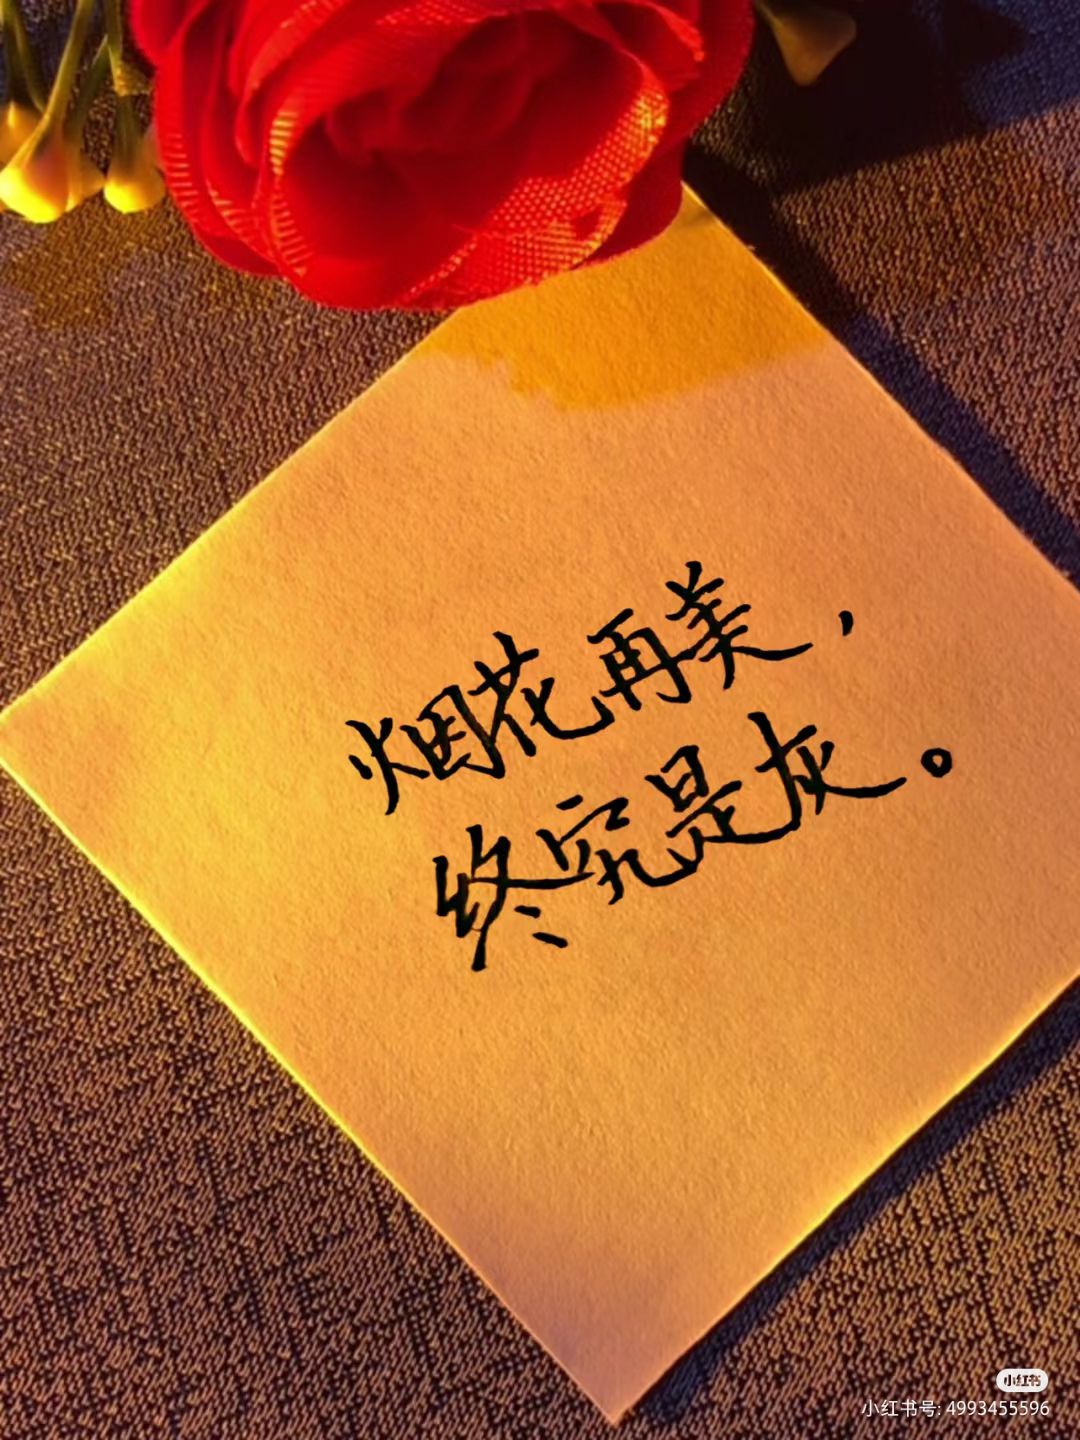 烟花再美，
终究是灰。
小红书
小红书号: 4993455596